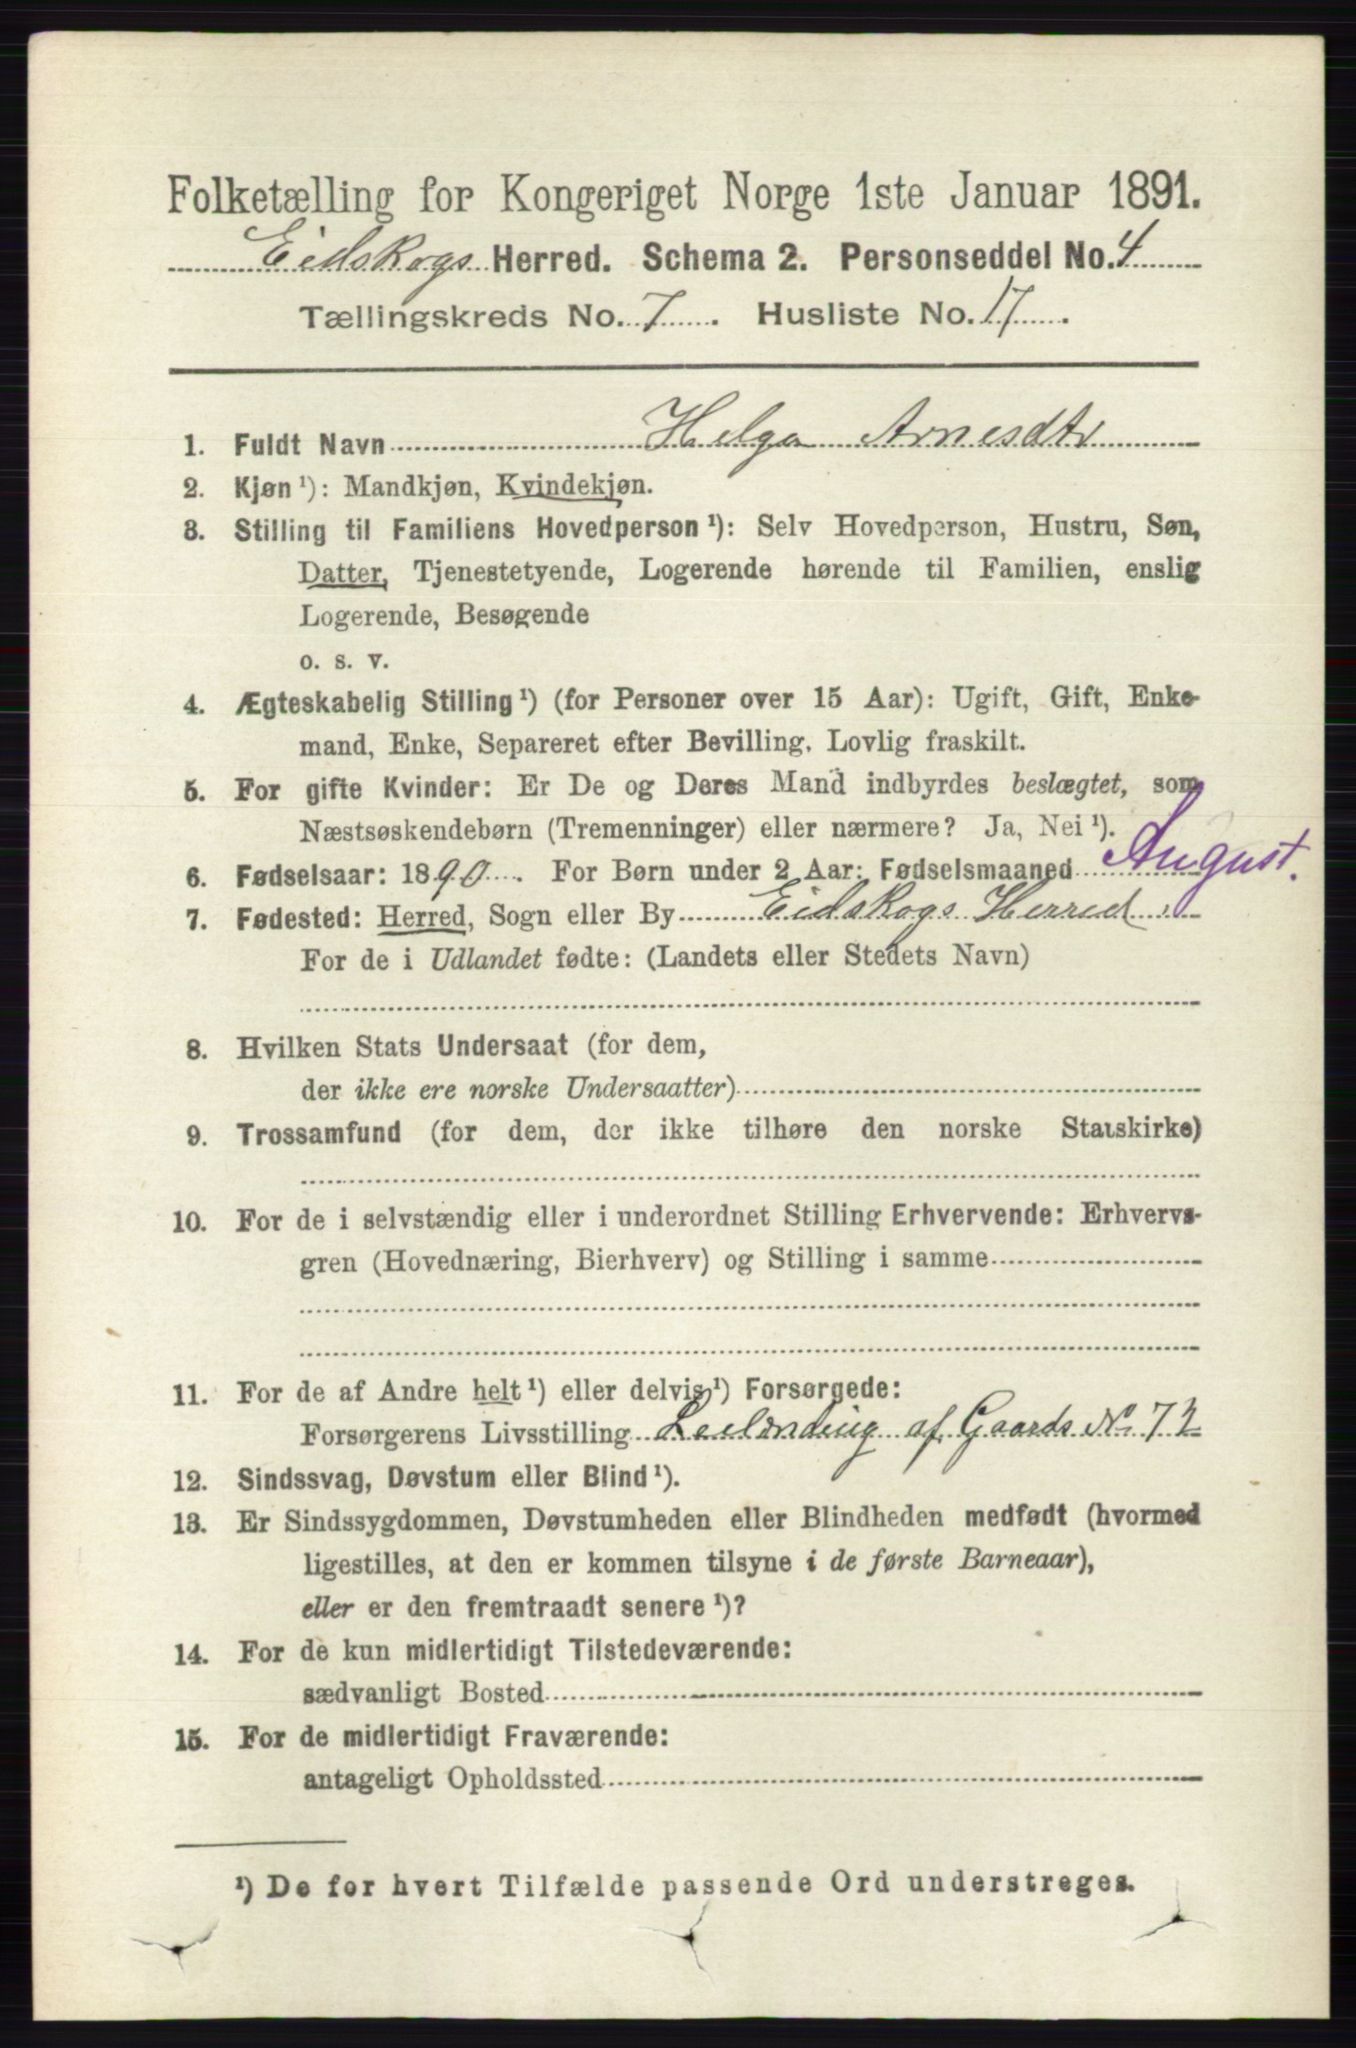 Folketælling for Kongeriget Norge 1ste Januar 1891.
Eidskogs Herred. Schema 2. Personseddel No. 4
Tællingskreds No. 7. Husliste No. 17.
1. Fuldt Navn Helga Arnesdtr
2. Kjøn ¹): Mandkjøn, Kvindekjøn.
3. Stilling til Familiens Hovedperson ¹): Selv Hovedperson, Hustru, Søn,
Datter, Tjenestetyende, Logerende hørende til Familien, enslig
Logerende, Besøgende
o. s. v.
4. Ægteskabelig Stilling ¹) (for Personer over 15 Aar): Ugift, Gift, Enke-
mand, Enke, Separeret efter Bevilling, Lovlig fraskilt.
5. For gifte Kvinder: Er De og Deres Mand indbyrdes beslægtet, som
Næstsøskendebørn (Tremenninger) eller nærmere? Ja, Nei ¹).
6. Fødselsaar: 1890. For Børn under 2 Aar: Fødselsmaaned August.
7. Fødested: Herred, Sogn eller By Eidskogs Herred
For de i Udlandet fødte: (Landets eller Stedets Navn)
8. Hvilken Stats Undersaat (for dem,
der ikke ere norske Undersaatter)
9. Trossamfund (for dem, der ikke tilhøre den norske Statskirke)
10. For de i selvstændig eller i underordnet Stilling Erhvervende: Erhvervs-
gren (Hovednæring, Bierhverv) og Stilling i samme
11. For de af Andre helt ¹) eller delvis ¹) Forsørgede:
Forsørgerens Livsstilling Leilænding af Gaards No 72
12. Sindssvag, Døvstum eller Blind ¹).
13. Er Sindssygdommen, Døvstumheden eller Blindheden medfødt (hvormed
ligestilles, at den er kommen tilsyne i de første Barneaar),
eller er den fremtraadt senere ¹)?
14. For de kun midlertidigt Tilstedeværende:
sædvanligt Bosted
15. For de midlertidigt Fraværende:
antageligt Opholdssted
¹) De for hvert Tilfælde passende Ord understreges.